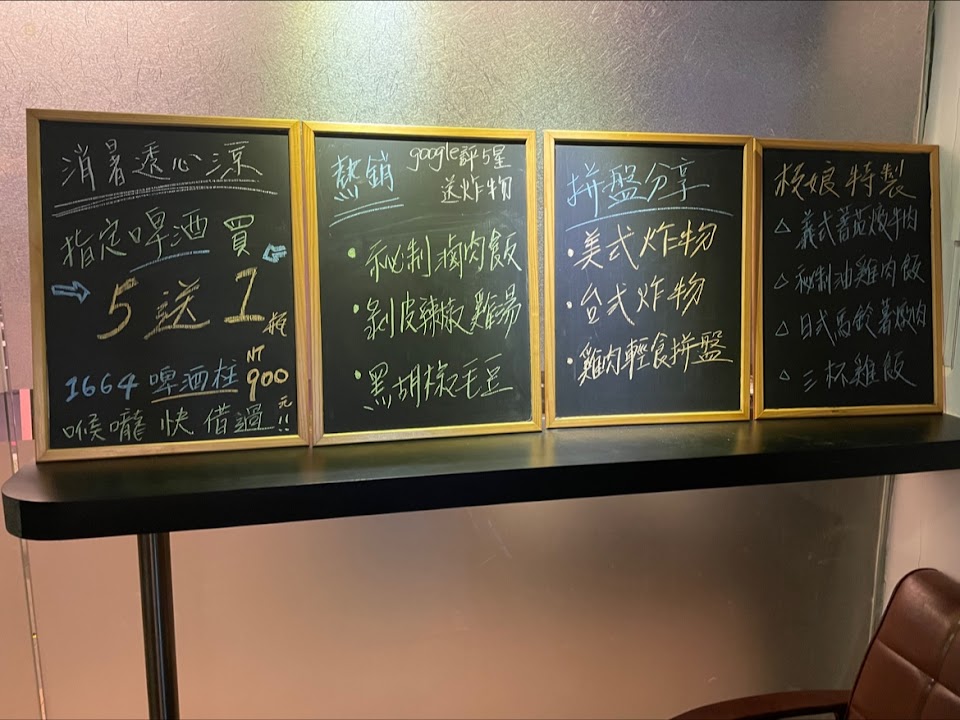 消暑透心涼
指定啤酒買
5送1瓶
1664啤酒柱NT900元
喉嚨快借過!!
熱銷
google評5星
送炸物
・秘制滷肉飯
・剝皮辣椒雞湯
・黑胡椒毛豆
拼盤分享
・美式炸物
・台式炸物
・雞肉輕食拼盤
娘特製
△義式蕃茄燉牛肉
△秘制油雞肉飯
△日式馬鈴薯燉肉
△三杯雞飯